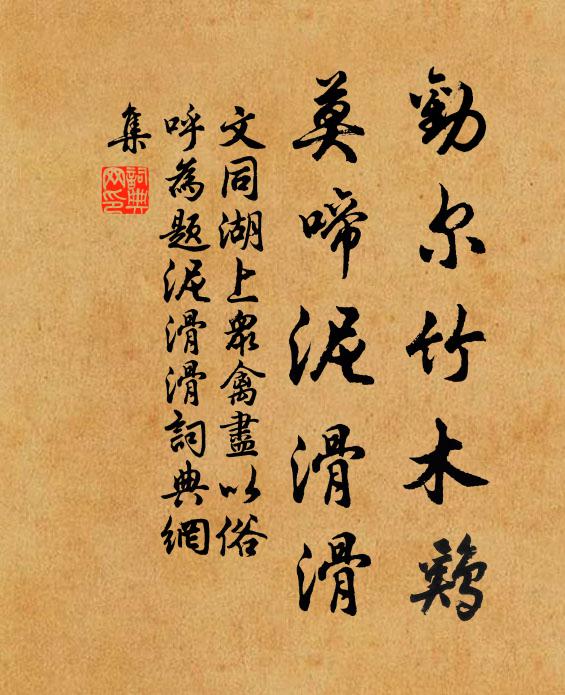 勸尔竹木鷄
莫啼泥滑滑
文同湖上衆禽盡以俗
呼為題泥滑滑詞典網
集
詞典網印